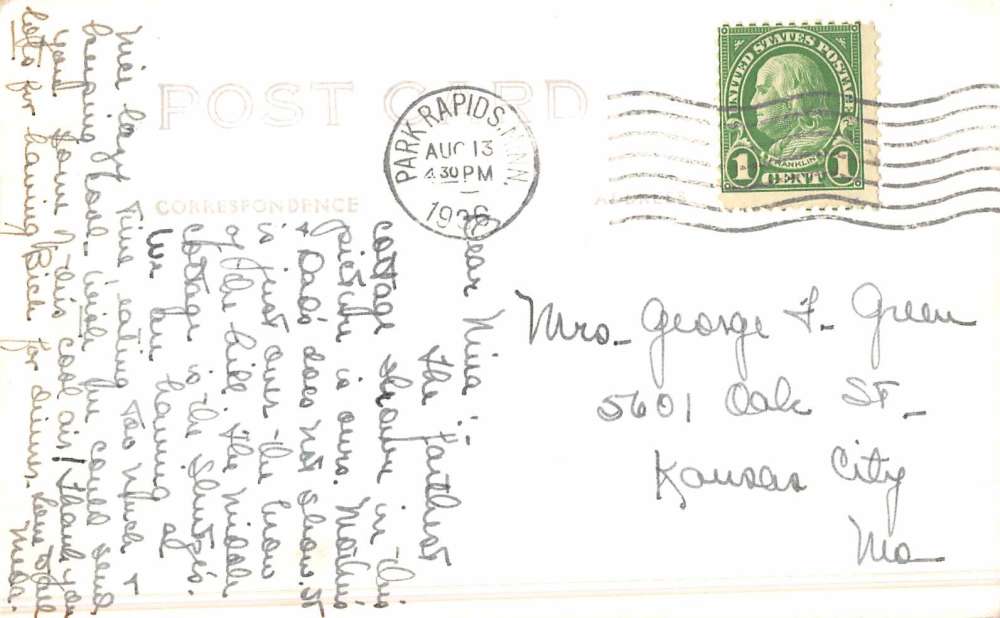 POST CARD
CORRESPONDENCE
PARK RAPIDS, MINN.
AUG 13
4 30 PM
1936
UNITED STATES POSTAGE
FRANKLIN
1 CENT 1
Dear Nina;
the farthest
cottage shown in this
picture is ours. Mother's
& Dad's does not show. It
is just over the brow
of the hill. The middle
cottage is the Shutzes.
We are having a
nice lazy time eating too much &
keeping cool. Wish we could send
you some this cool air! Thank you
lots for having Dick for dinner. Love to all
Meda.
Mrs. George F. Green
5601 Oak St.
Kansas City
Mo